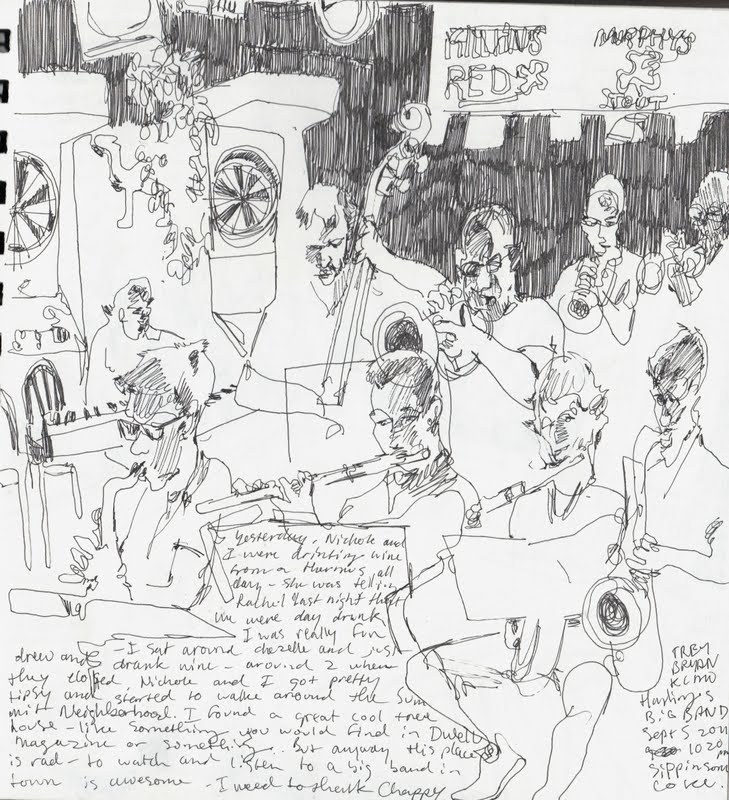 KILLIAN'S
RED
MURPHYS
STOUT
Yesterday. Nichole and
I were drinking wine
from a thermos all
day - she was telling
Rachel last night that
we were day drunk
I was really fun
- I sat around and just
drew and drank wine - around 2 when
they closed, Nichole and I got pretty
tipsy and started to walk around the Sum
mit Neighborhood. I found a great cool tree
house - like something you would find in Dwell
magazine or something.. But anyway this place
is rad - to watch and listen to a big band in
town is awesome - I need to thank Chappy
TREY
BRYAN
KCMO
Harling's
BIG BAND
Sept 5 2011
1020 pm
Sippin som